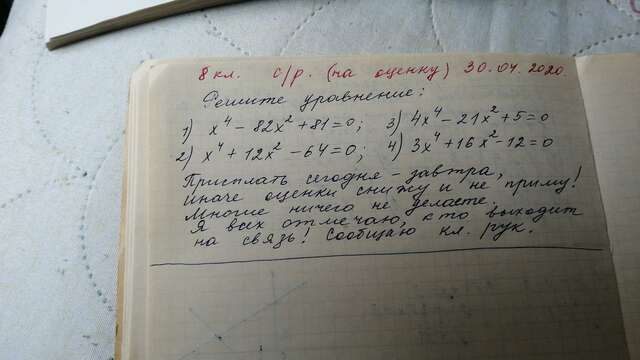 8 кл. с/р. (на оценку) 30.04.2020
Решите уравнение:
1) x⁴ - 82x² + 81 = 0; 3) 4x⁴ - 21x² + 5 = 0
2) x⁴ + 12x² - 64 = 0; 4) 3x⁴ + 16x² - 12 = 0
Присылать сегодня - завтра,
иначе оценки снижу и не приму!
Многие ничего не делаете.
Я всех отмечаю, кто выходит
на связь! Сообщаю кл. рук.